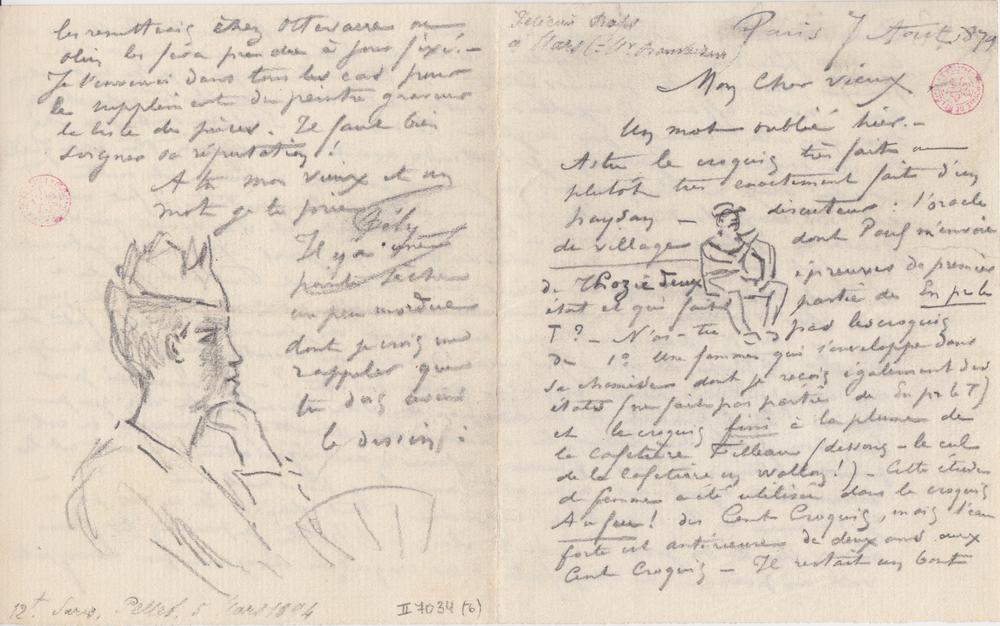 Paris 7 Août 1879
Mon Cher Vieux
Un mot oublié hier. –
As tu le croquis très faits ou
plutôt très exactement faits d'un
paysan – discuteur. l'oracle
de village dont Paul m'envoie
épreuves de premier
état et qui faits partie de En pr le
T? – N'as-tu pas les croquis
de 1º Une femme qui s'enveloppe dans
sa chemise dont je reçois également des
états (ne fait pas partie de En pr le T)
et le croquis fini à la plume de
la Cafetière Filleau (dessous – le cul
de la Cafetière en wallon!) – Cette étude
de femme a été utilisée dans le croquis
Au feu! des Cent Croquis, mais l'eau
forte est antérieure de deux ans aux
Cent Croquis – Il restait un bout
les remettrais chez Ottevaere ou
olin les fera prendre à jour fixé. –
Je t'enverrai dans tous les cas pour
le supplément du peintre graveur
la liste des pièces. Il faut bien
soigner sa réputation!
A toi mon vieux et un
mot je te prie
Fély
Il y a une
pointe sèche
un peu mordue
dont je crois me
rappeler que
tu dois avoir
le dessin:
12t. Paris, Pellet, 5 Mars 1894
II 7034 (6)